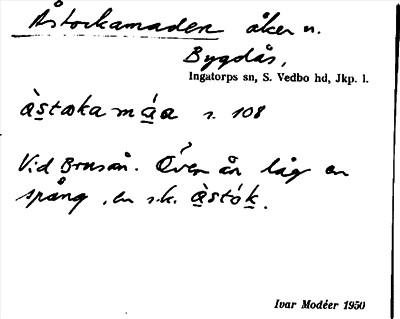 Åstockamaden åker n.
Bygdås,
Ingatorps sn, S. Vedbo hd, Jkp. l.
àstaka máa s. 108
Vid Brusån. Över ån låg en
spång, en s.k. àstók.
Ivar Modéer 1950